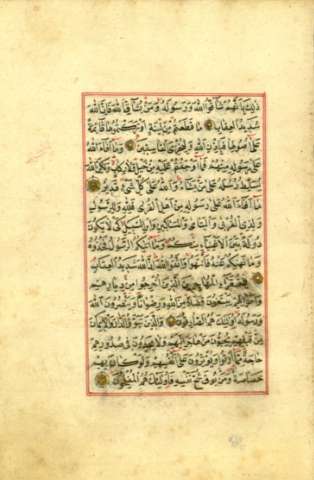 ذلك بانهم شاقوا الله ورسوله ومن يشاق الله فان الله
شديد العقاب ما قطعتم من لينة او تركتموها قائمة
على اصولها فباذن الله وليخزي الفاسقين وما افاء الله
على رسوله منهم فما اوجفتم عليه من خيل ولا ركاب ولكن الله
يسلط رسله على من يشاء والله على كل شيء قدير
ما افاء الله على رسوله من اهل القرى فلله وللرسول
ولذي القربى واليتامى والمساكين وابن السبيل كي لا يكون
دولة بين الاغنياء منكم وما اتيكم الرسول فخذوه
وما نهيكم عنه فانتهوا واتقوا الله ان الله شديد العقاب
للفقراء المهاجرين الذين اخرجوا من ديارهم
واموالهم يبتغون فضلا من الله ورضوانا وينصرون الله
ورسوله اولئك هم الصادقون والذين تبوؤ الدار والايمان
من قبلهم يحبون من هاجر اليهم ولا يجدون في صدورهم
حاجة مما اوتوا ويؤثرون على انفسهم ولو كان بهم
خصاصة ومن يوق شح نفسه فاولئك هم المفلحون